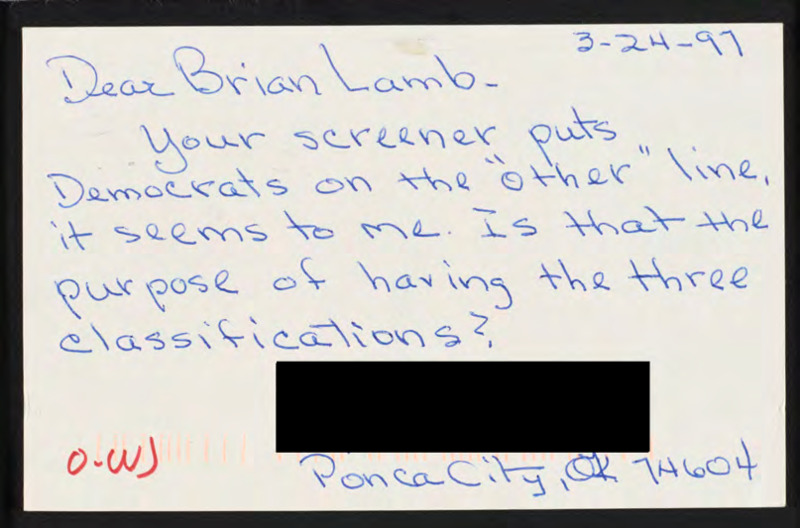 3-24-97
Dear Brian Lamb-
Your screener puts
Democrats on the "other" line,
it seems to me. Is that the
purpose of having the three
classifications?
O-WJ
Ponca City, OK 74604